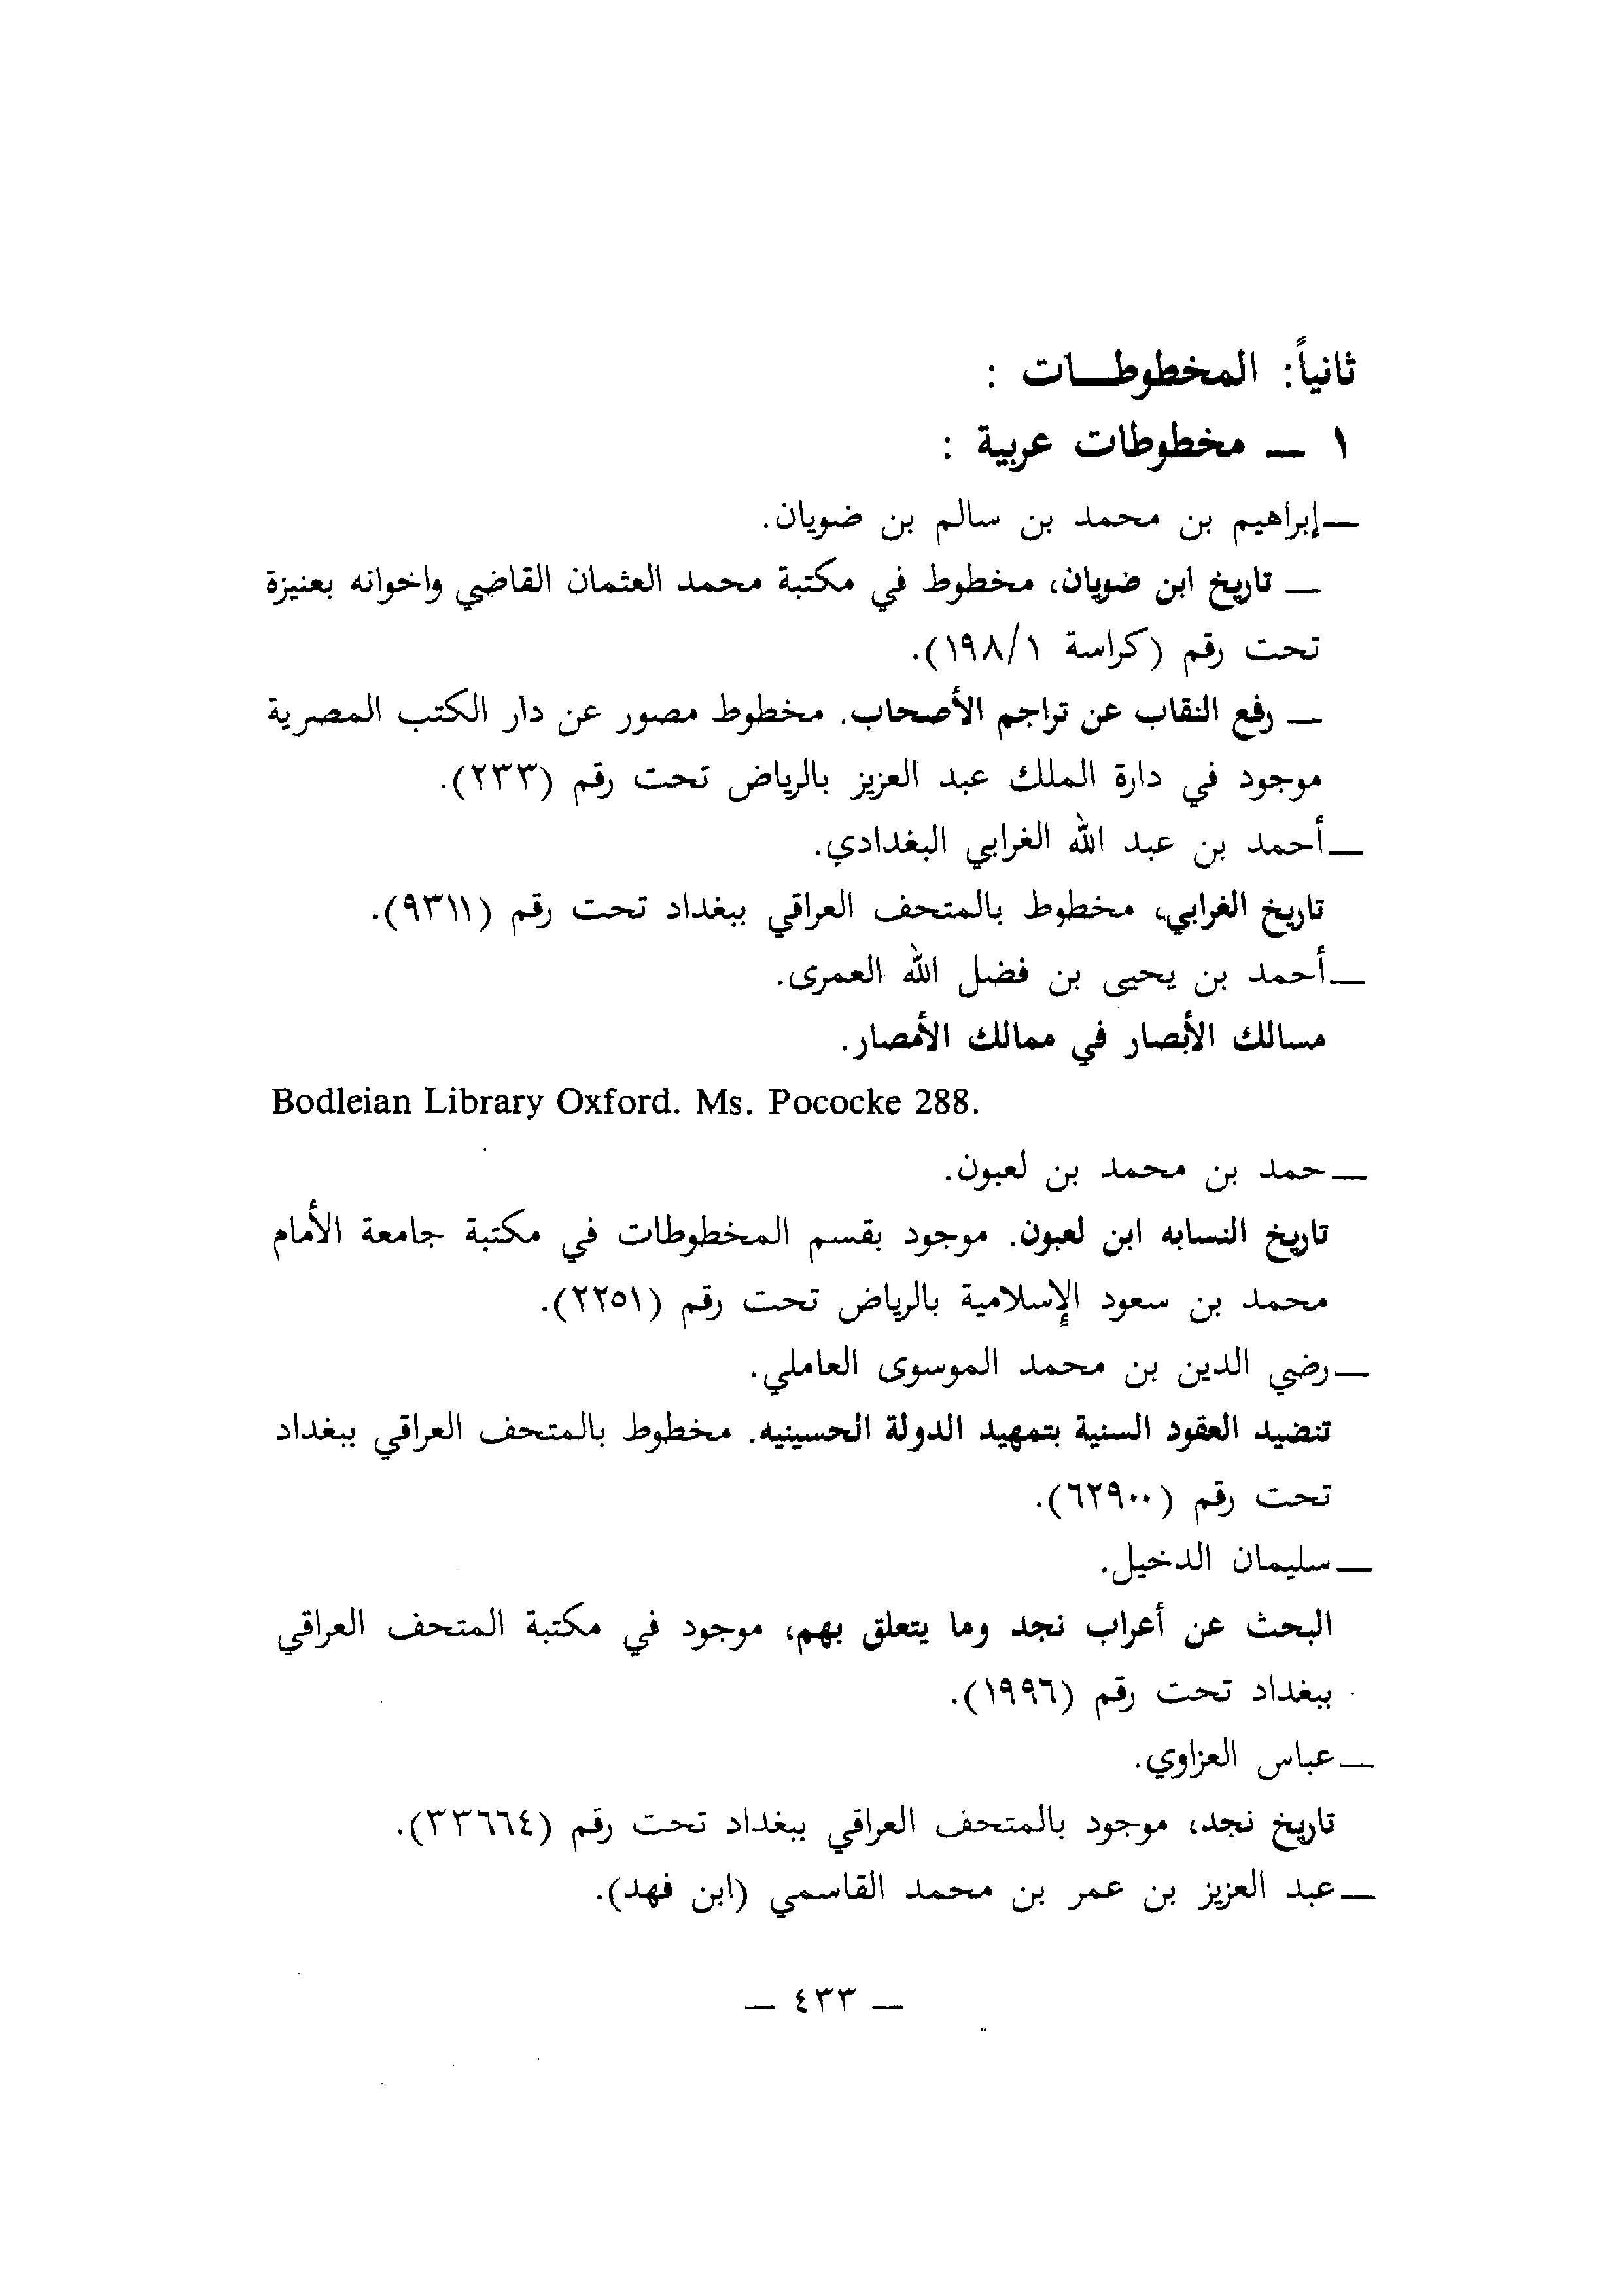 ثانياً: المخطوطـــات :
١ — مخطوطات عربية :
—إبراهيم بن محمد بن سالم بن ضويان.
— تاريخ ابن ضويان، مخطوط في مكتبة محمد العثمان القاضي واخوانه بعنيزة
تحت رقم (كراسة ١٩٨/١).
— رفع النقاب عن تراجم الأصحاب. مخطوط مصور عن دار الكتب المصرية
موجود في دارة الملك عبد العزيز بالرياض تحت رقم (٢٣٣).
—أحمد بن عبد الله الغرابي البغدادي.
تاريخ الغرابي، مخطوط بالمتحف العراقي ببغداد تحت رقم (٩٣١١).
—أحمد بن يحيى بن فضل الله العمرى.
مسالك الأبصار في ممالك الأمصار.
Bodleian Library Oxford. Ms. Pococke 288.
—حمد بن محمد بن لعبون.
تاريخ النسابه ابن لعبون. موجود بقسم المخطوطات في مكتبة جامعة الأمام
محمد بن سعود الإسلامية بالرياض تحت رقم (٢٢٥١).
—رضي الدين بن محمد الموسوى العاملي.
تنضيد العقود السنية بتمهيد الدولة الحسينيه. مخطوط بالمتحف العراقي ببغداد
تحت رقم (٦٢٩٠٠).
—سليمان الدخيل.
البحث عن أعراب نجد وما يتعلق بهم، موجود في مكتبة المتحف العراقي
ببغداد تحت رقم (١٩٩٦).
—عباس العزاوي.
تاريخ نجد، موجود بالمتحف العراقي ببغداد تحت رقم (٣٣٦٦٤).
—عبد العزيز بن عمر بن محمد القاسمي (ابن فهد).
— ٤٣٣ —